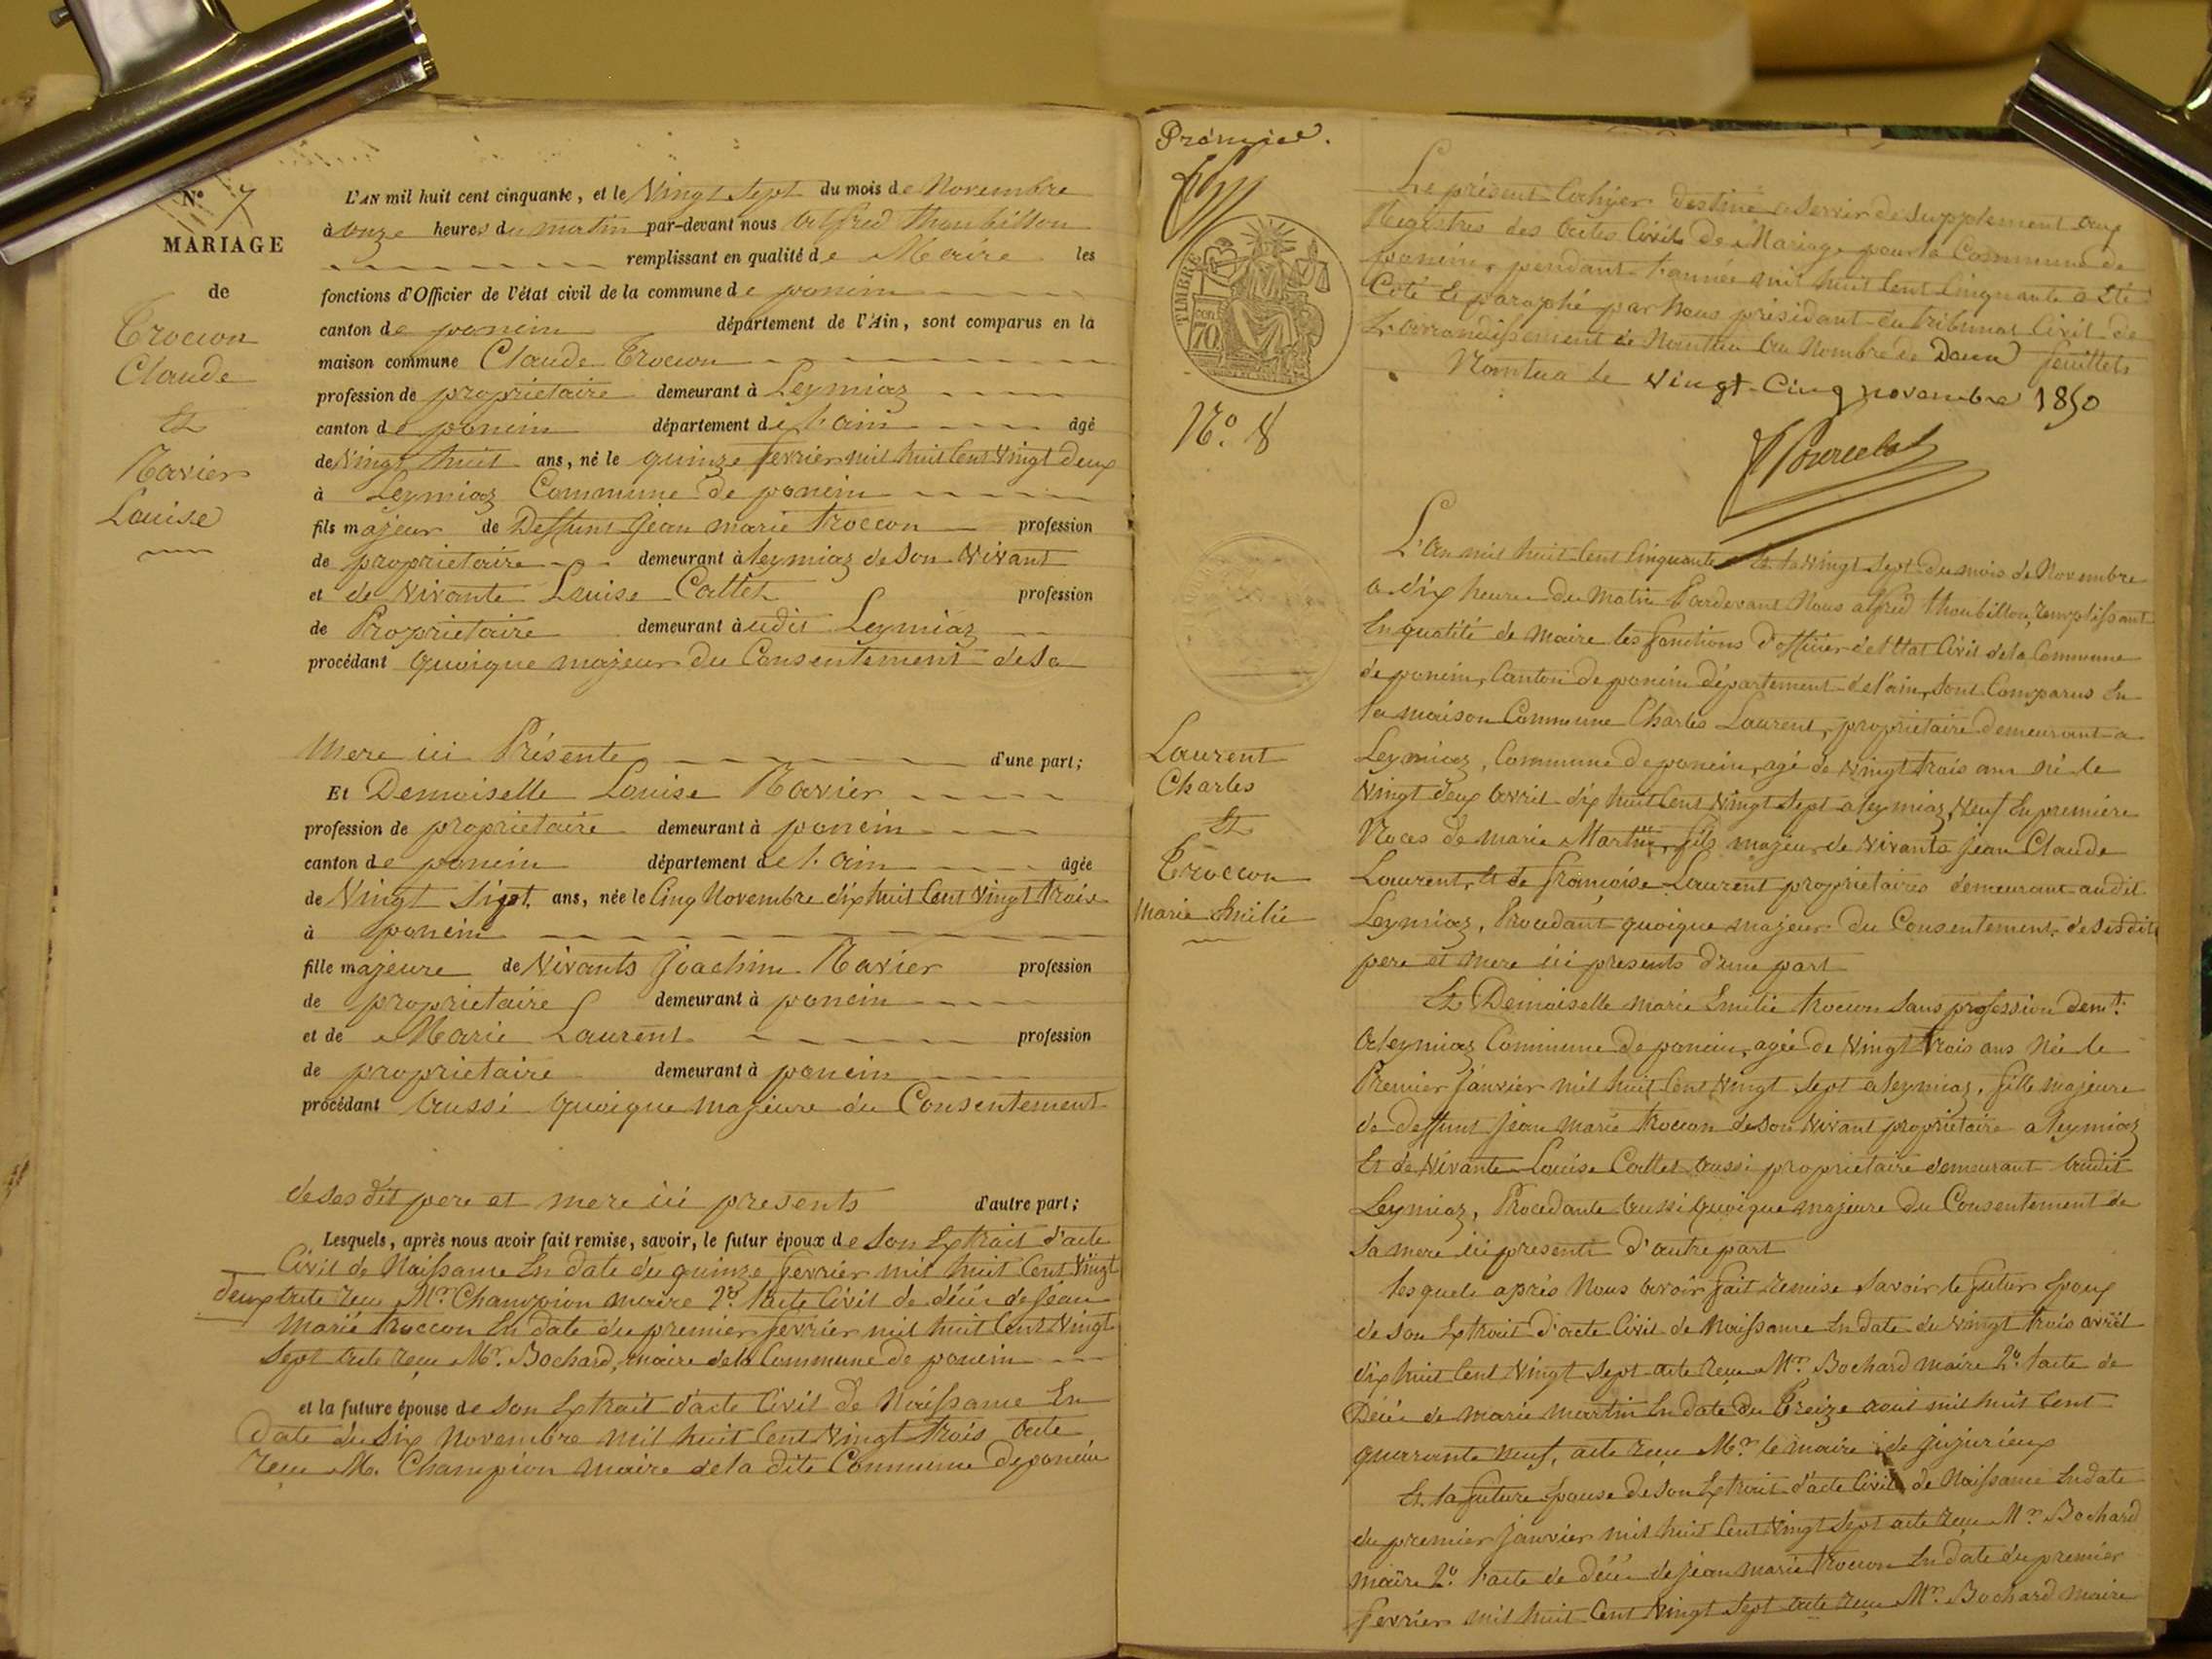 N° 7
MARIAGE
de
Troccon
Claude
Et
Ravier
Louise
L'AN mil huit cent cinquante, et le Vingt Sept du mois de Novembre
à onze heures du matin par-devant nous Alfred Thoubillon
remplissant en qualité de Maire les
fonctions d'Officier de l'état civil de la commune de poncin
canton de poncin département de l'Ain, sont comparus en la
maison commune Claude Troccon
profession de proprietaire demeurant à Leymiaz
canton de poncin département de l'ain âgé
de Vingt huit ans, né le quinze fevrier mil huit Cent Vingt deux
à Leymiaz Commune de poncin
fils majeur de Deffunt Jean marie Troccon profession
de proprietaire demeurant à leymiaz de son Vivant
et de Vivante Louise Callet profession
de Proprietaire demeurant à udit Leymiaz
procédant quoique majeur du Consentement de sa
Mere ici Présente d'une part;
Et Demoiselle Louise Ravier
profession de proprietaire demeurant à poncin
canton de poncin département de l'ain âgée
de Vingt Sept ans, née le Cinq Novembre dix huit Cent Vingt trois
à poncin
fille majeure de Vivants Joachim Ravier profession
de proprietaire demeurant à poncin
et de Marie Laurent profession
de proprietaire demeurant à poncin
procédant aussi quoique majeure du Consentement
de ses dit pere et mere ici presents d'autre part;
Lesquels, après nous avoir fait remise, savoir, le futur époux de Son Extrait d'acte
Civil de Naissance En date du quinze fevrier mil huit Cent Vingt
deux acte reçu Mr Champion maire 2° l'acte Civil de décés de Jean
Marie Troccon En date du premier fevrier mil huit Cent Vingt
Sept acte reçu Mr. Bochard, maire de la Commune de poncin
et la future épouse de Son Extrait d'acte Civil de Naissance En
date du Six Novembre mil huit Cent Vingt trois acte
reçu M. Champion maire de la dite Commune de poncin
Prémier.
TIMBRE
70
N°. 8
Le présent Cahier destiné a servir de supplement aux
Registres des Actes Civils de Mariage pour la Commune de
poncin, pendant l'année mil huit Cent Cinquante a été
Coté Et paraphé par Nous président du tribunal Civil de
L'arrondissement de Nantua au Nombre de Deux feuillets
Nantua le vingt-Cinq novembre 1850
Laurent
Charles
Et
Troccon
Marie Emilie
L'an mil huit Cent Cinquante Et le Vingt Sept du mois de Novembre
a dix heures du Matin Pardevant Nous alfred Thoubillon, remplissant
En qualité de Maire les fonctions d'officier de l'Etat Civil de la Commune
de poncin, Canton de poncin département de l'ain, sont Comparus En
la maison Commune Charles Laurent, proprietaire demeurant a
Leymiaz, Commune de poncin, agé de Vingt trois ans né le
Vingt deux avril dix huit Cent Vingt Sept a leymiaz, Veuf En première
Noces de marie Martin, fils majeur de Vivants Jean Claude
Laurent, Et de françoise Laurent proprietaires demeurant audit
Leymiaz, Procedant quoique majeur du Consentement de ses dits
pere et mere ici presents d'une part
Et Demoiselle Marie Emilie Troccon Sans profession demt.
a leymiaz Commune de poncin, agée de Vingt Trois ans Née le
Premier Janvier mil huit Cent Vingt Sept a leymiaz, fille majeure
de deffunt Jean Marie Troccon de son Vivant proprietaire a leymiaz
Et de Vivante Louise Callet aussi proprietaire demeurant audit
Leymiaz, Procedante aussi quoique majeure du Consentement de
sa mere ici presente d'autre part
lesquels après Nous avoir fait remise Savoir le futur Epoux
de son Extrait d'acte Civil de Naissance En date du Vingt trois avril
dix huit Cent Vingt Sept acte reçu Mr. Bochard maire 2° l'acte de
Décés de Marie Martin En date du Treize aout mil huit Cent
quarante neuf, acte reçu Mr. le maire de jujurieux
Et la future Epouse de son Extrait d'acte Civil de Naissance En date
du premier Janvier mil huit Cent Vingt Sept acte reçu Mr. Bochard
Maire 2° l'acte de décés de Jean Marie Troccon En date du premier
fevrier mil huit Cent Vingt Sept acte reçu Mr. Bochard Maire